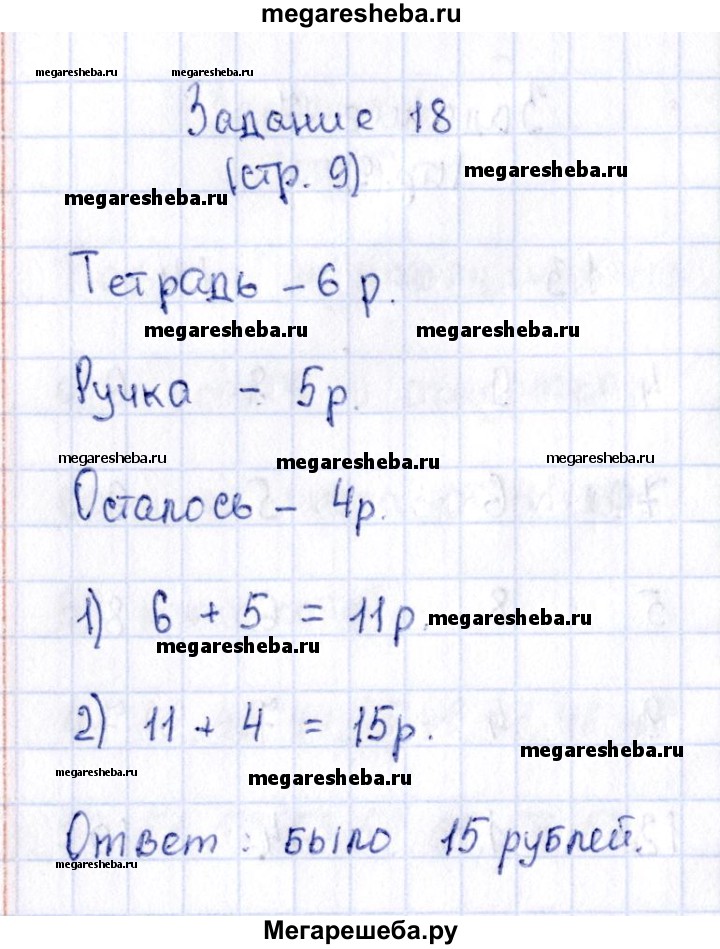 megaresheba.ru
megaresheba.ru megaresheba.ru
Задание 18
(стр. 9) megaresheba.ru
megaresheba.ru
Тетрадь – 6 р.
megaresheba.ru megaresheba.ru
Ручка – 5р.
megaresheba.ru megaresheba.ru megaresheba.ru
Осталось – 4р.
1) 6 + 5 = 11р. megaresheba.ru
megaresheba.ru
2) 11 + 4 = 15р.
megaresheba.ru
megaresheba.ru megaresheba.ru
Ответ: было 15 рублей.
megaresheba.ru
Мегарешеба.ру